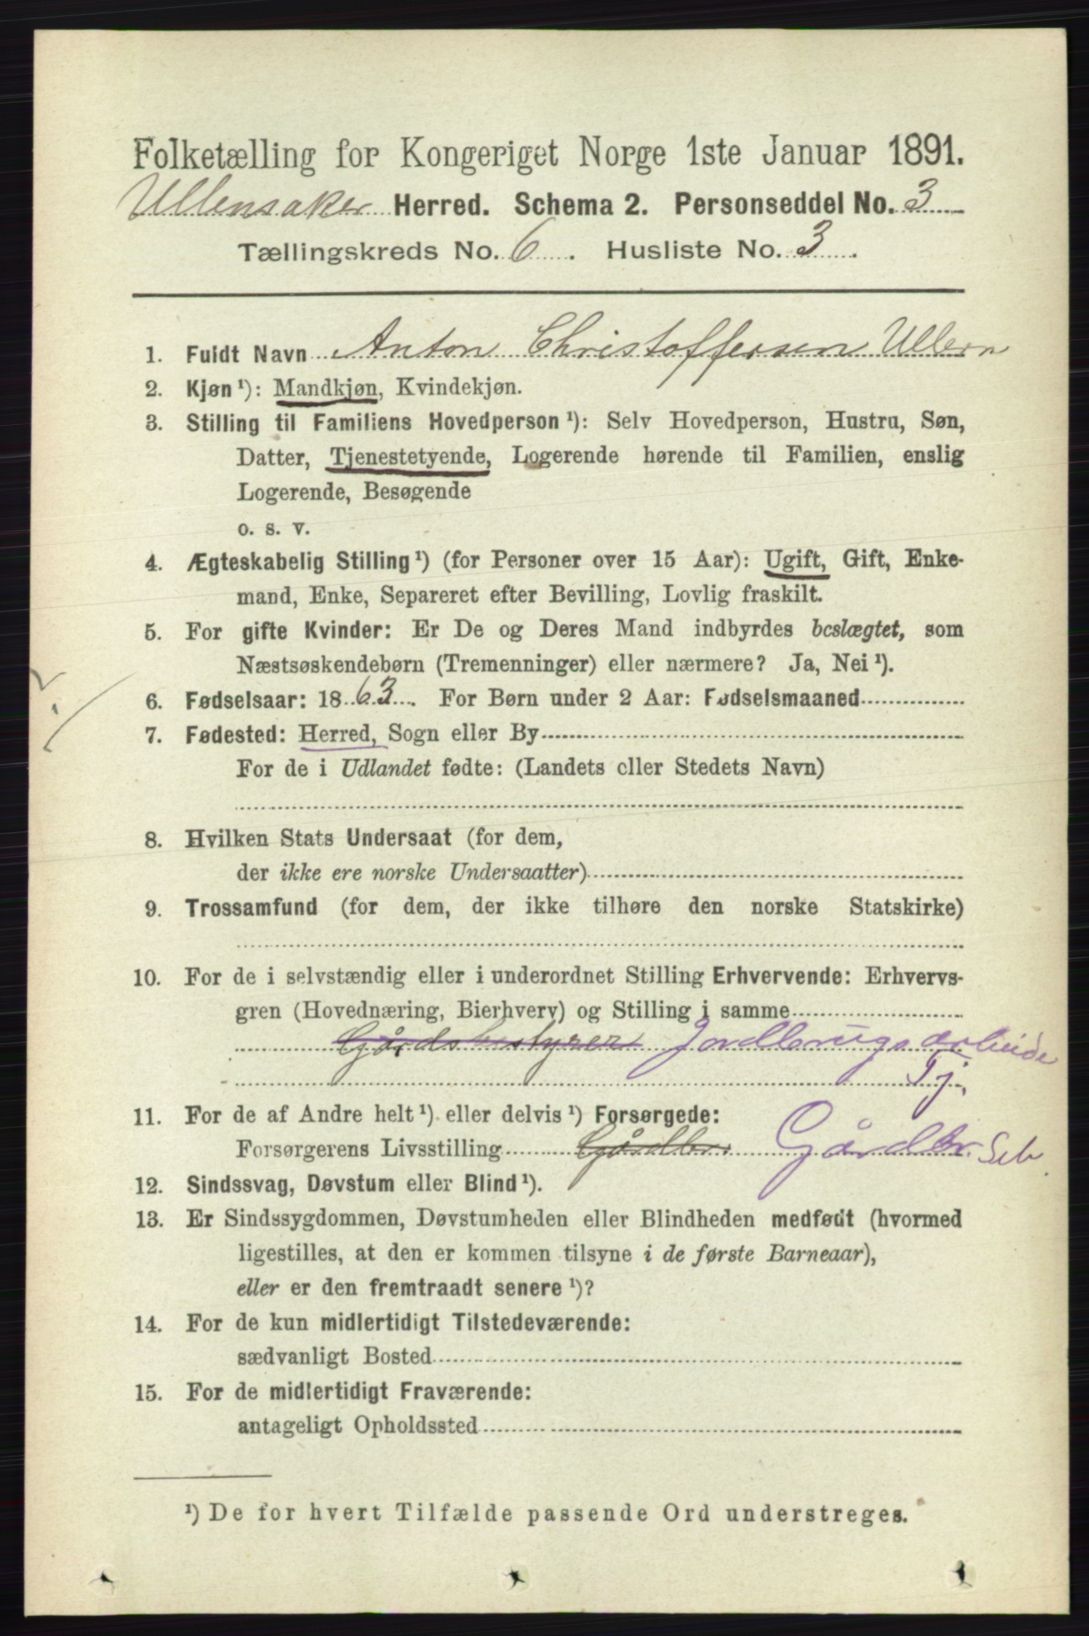 Folketælling for Kongeriget Norge 1ste Januar 1891.
Ullensaker Herred. Schema 2. Personseddel No. 3
Tællingskreds No. 6. Husliste No. 3.
1. Fuldt Navn Anton Christoffersen Ullern
2. Kjøn ¹): Mandkjøn, Kvindekjøn.
3. Stilling til Familiens Hovedperson ¹): Selv Hovedperson, Hustru, Søn,
Datter, Tjenestetyende, Logerende hørende til Familien, enslig
Logerende, Besøgende
o. s. v.
4. Ægteskabelig Stilling ¹) (for Personer over 15 Aar): Ugift, Gift, Enke-
mand, Enke, Separeret efter Bevilling, Lovlig fraskilt.
5. For gifte Kvinder: Er De og Deres Mand indbyrdes beslægtet, som
Næstsøskendebørn (Tremenninger) eller nærmere? Ja, Nei ¹).
6. Fødselsaar: 1863. For Børn under 2 Aar: Fødselsmaaned
7. Fødested: Herred, Sogn eller By
For de i Udlandet fødte: (Landets eller Stedets Navn)
8. Hvilken Stats Undersaat (for dem,
der ikke ere norske Undersaatter)
9. Trossamfund (for dem, der ikke tilhøre den norske Statskirke)
10. For de i selvstændig eller i underordnet Stilling Erhvervende: Erhvervs-
gren (Hovednæring, Bierhverv) og Stilling i samme
Gårdsbestyrer Jordbrugsarbeide
Tj.
11. For de af Andre helt ¹) eller delvis ¹) Forsørgede:
Forsørgerens Livsstilling Gårdbr. Gårdbr. Selv
12. Sindssvag, Døvstum eller Blind ¹).
13. Er Sindssygdommen, Døvstumheden eller Blindheden medfødt (hvormed
ligestilles, at den er kommen tilsyne i de første Barneaar),
eller er den fremtraadt senere ¹)?
14. For de kun midlertidigt Tilstedeværende:
sædvanligt Bosted
15. For de midlertidigt Fraværende:
antageligt Opholdssted
¹) De for hvert Tilfælde passende Ord understreges.